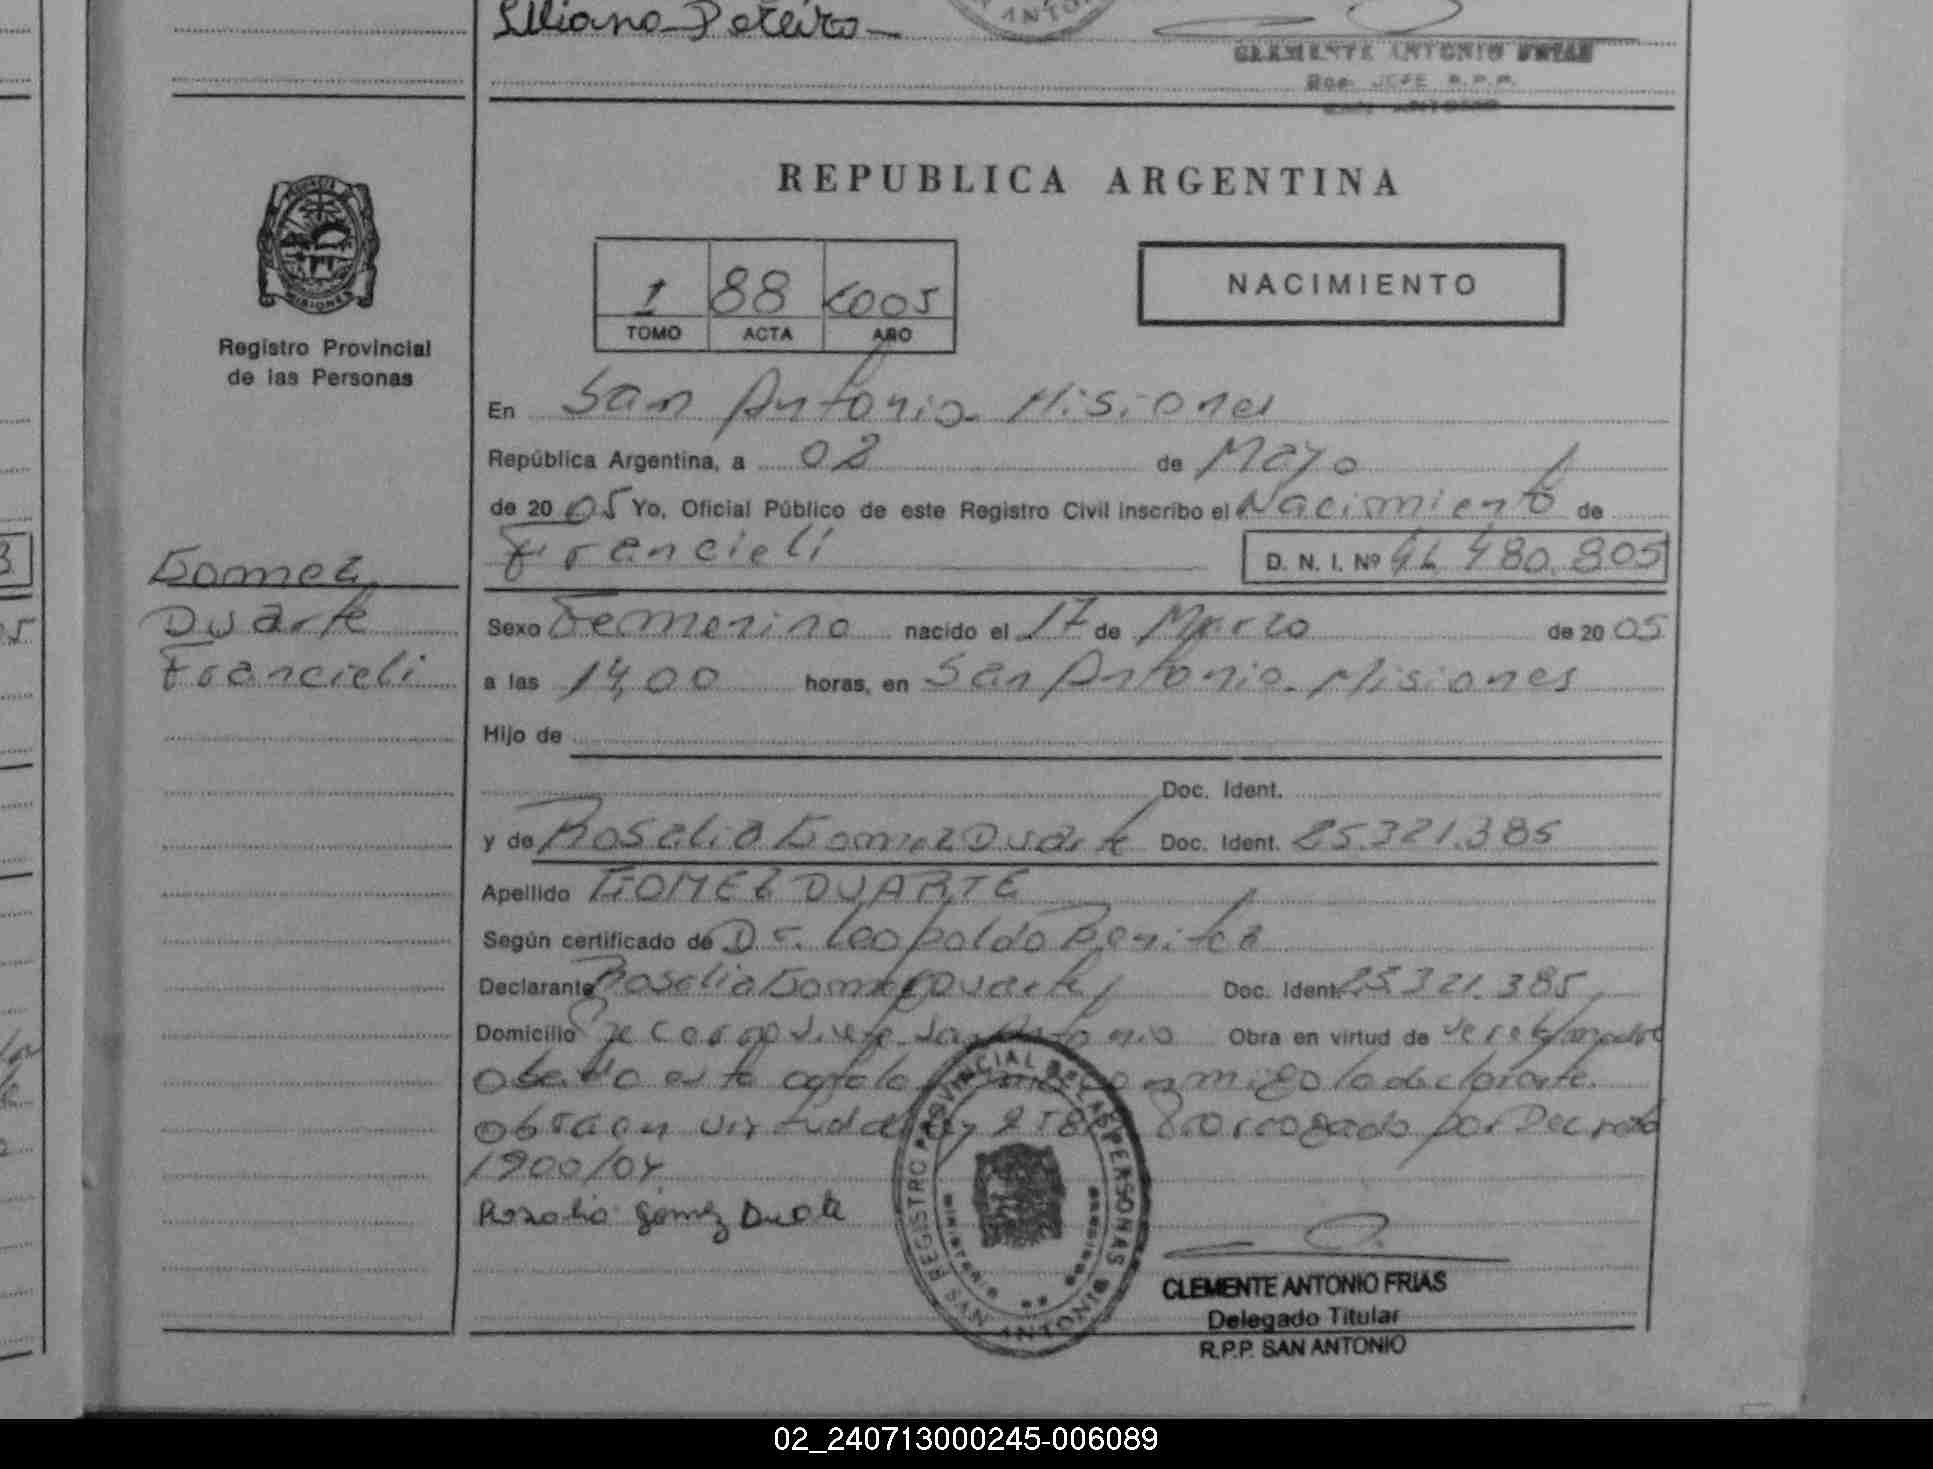 Liliana Pereiro
CLEMENTE ANTONIO FRIAS
JEFE R.P.P.
SAN ANTONIO
REPUBLICA ARGENTINA
1 88 2005
TOMO ACTA AÑO
NACIMIENTO
Registro Provincial
de las Personas
En San Antonio. Misiones
República Argentina, a 02 de Mayo
de 2005 Yo, Oficial Público de este Registro Civil inscribo el Nacimiento de
Francieli D. N. I. Nº 480.805
Gomez
Duarte
Francieli
Sexo Femenino nacido el 17 de Marzo de 2005
a las 14,00 horas, en San Antonio. Misiones
Hijo de
Doc. Ident.
y de Rosalia Gomez Duarte Doc. Ident. 25.321.385
Apellido GOMEZ DUARTE
Según certificado de Dr. Leopoldo Benitez
Declarante Rosalia Gomez Duarte Doc. Ident. 25.321.385
Domicilio San Antonio Obra en virtud de ser la madre
conmigo la declarante.
obra en virtud de Ley Prorrogado por Decreto
1900/04
Rosalia Gómez Duarte
REGISTRO PROVINCIAL DE LAS PERSONAS
MINISTERIO DE
SAN ANTONIO
CLEMENTE ANTONIO FRIAS
Delegado Titular
R.P.P. SAN ANTONIO
02_240713000245-006089